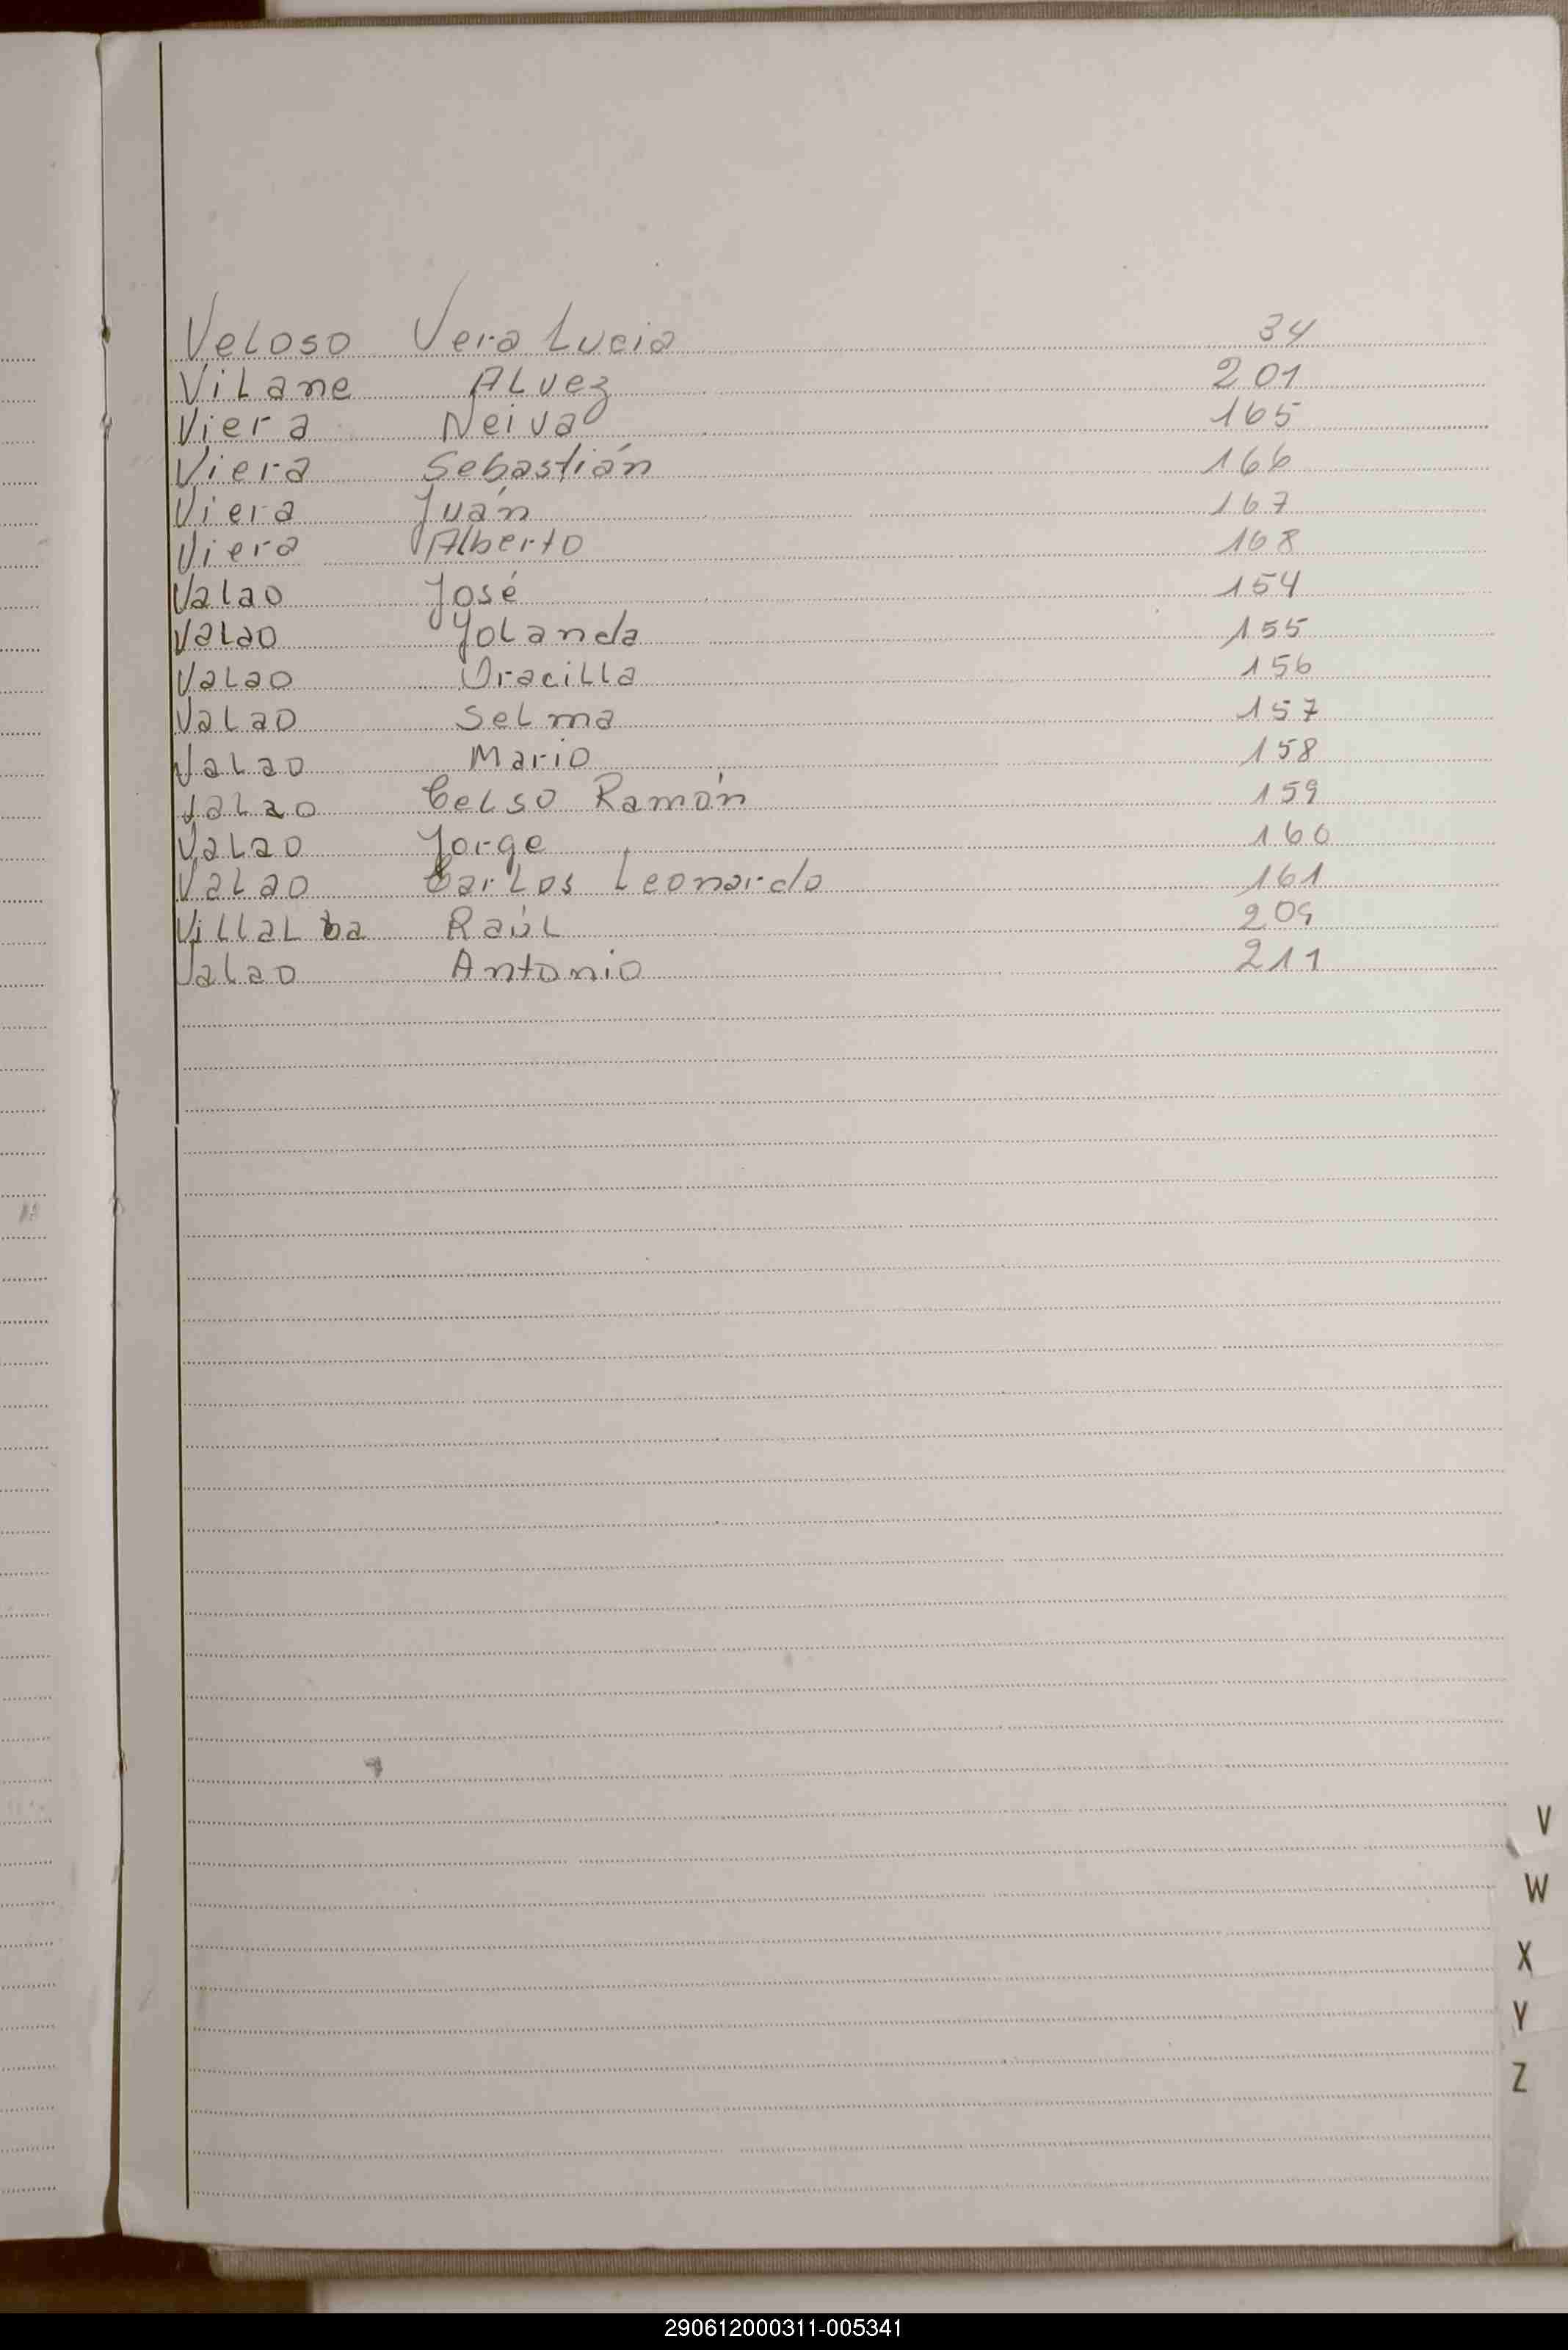 Veloso Vera Lucia 34
Vilane Alvez 201
Viera Neiva 165
Viera Sebastián 166
Viera Juán 167
Viera Alberto 168
Valao José 154
Valao Yolanda 155
Valao Oracilla 156
Valao Selma 157
Valao Mario 158
Valao Celso Ramón 159
Valao Jorge 160
Valao Carlos Leonardo 161
Villalba Raúl 209
Valao Antonio 211
V
W
X
Y
Z
290612000311-005341